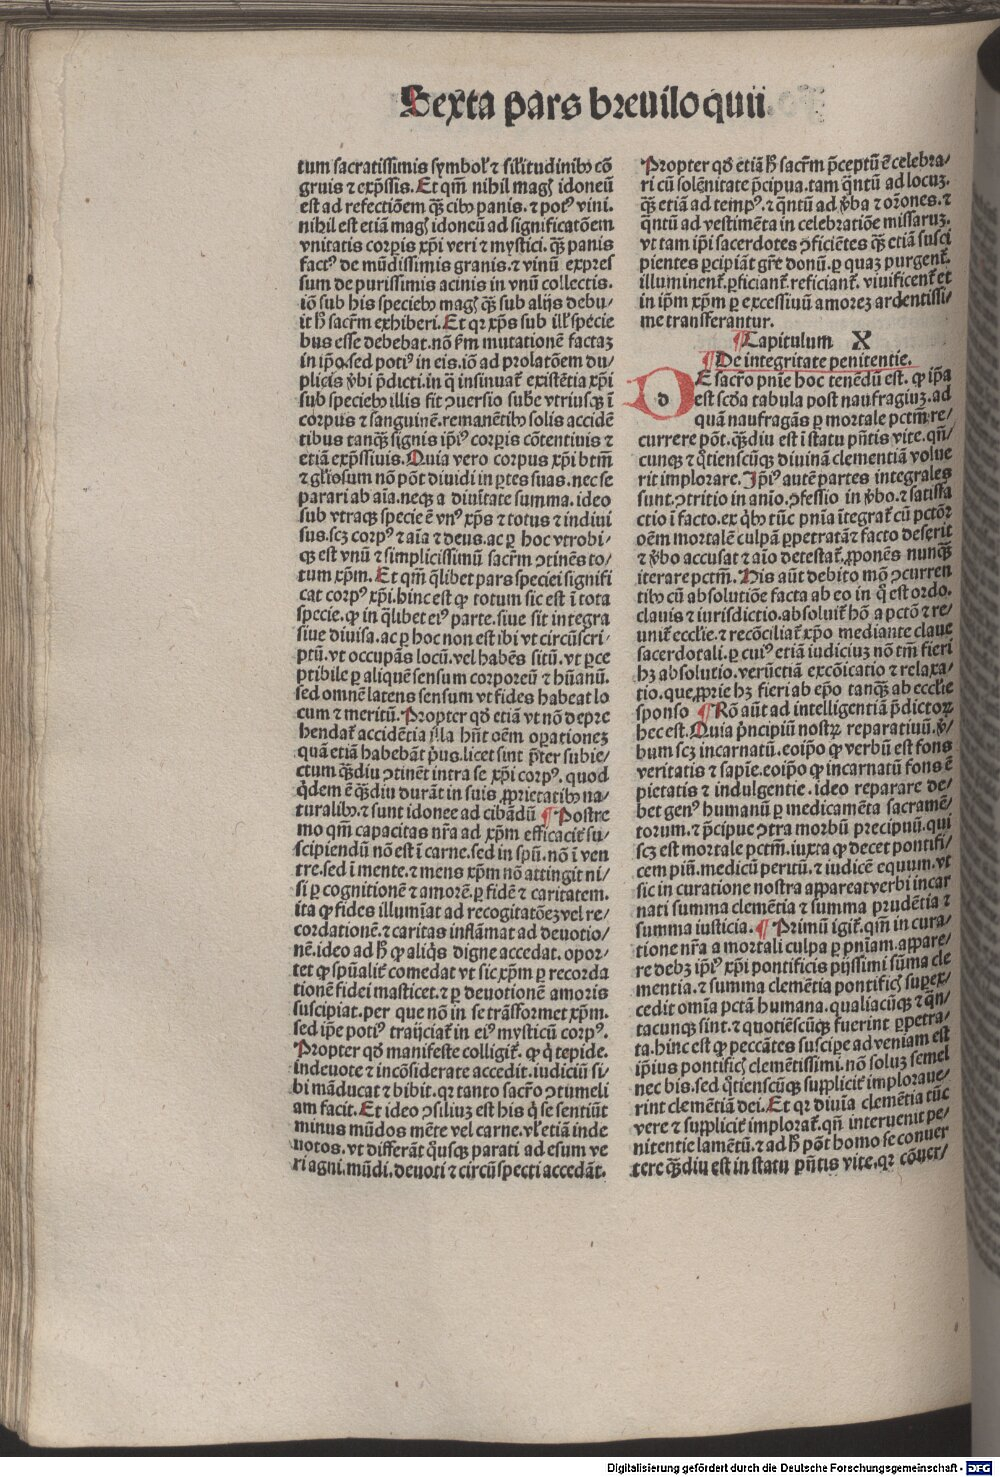 Sexta pars breuiloquii
tum sacratissimis symbol' ⁊ sil'itudinibꝰ cō
gruis ⁊ exp̄ssis. Et qm̄ nihil magꝭ idoneū
est ad refectiōem qꝫ cibꝰ panis. ⁊ potꝰ vini.
nihil est etiā magꝭ idoneū ad significatōem
vnitatis corpis xp̄i veri ⁊ mystici. qꝫ panis
factꝰ de mūdissimis granis. ⁊ vinū expres
sum de purissimis acinis in vnū collectis.
iō sub his speciebꝰ magꝭ qꝫ sub alijs debu⸗
it h̄ sacr̄m exhiberi. Et qꝛ xp̄s sub ill' specie
bus esse debebat. nō ꝑm mutationē factaꝫ
in ip̄o. sed potiꝰ in eis. iō ad prolatōem du⸗
plicis ꝟbi p̄dicti. in q̄ insinuat̄ existētia xp̄i
sub speciebꝰ illis fit ꝯuersio sube vtriusqꝫ ī
corpus ⁊ sanguinē. remanētibꝰ solis accidē
tibus tanqꝫ signis ip̄iꝰ corpis cōtentiuis ⁊
etiā exp̄ssiuis. Quia vero corpus xp̄i btm̄
⁊ gl'iosum nō pōt diuidi in ꝑtes suas. nec se
parari ab aīa. neqꝫ a diuītate summa. ideo
sub vtraqꝫ specie ē vnꝰ xp̄s ⁊ totus ⁊ indiui
sus. scꝫ corpꝰ ⁊ aīa ⁊ deus. ac ꝑ hoc vtrobi⸗
qꝫ est vnū ⁊ simplicissimū sacr̄m ꝯtinēs to⸗
tum xp̄m. Et qm̄ q̄libet pars speciei signifi
cat corpꝰ xp̄i. hinc est ꝙ totum sic est ī tota
specie. ꝙ in q̄libet eiꝰ parte. siue sit integra
siue diuisa. ac ꝑ hoc non est ibi vt circūscri⸗
ptū. vt occupās locū. vel habēs sitū. vt ꝑce
ptibile ꝑ aliquē sensum corporeū ⁊ hūanū.
sed omnē latens sensum vt fides habeat lo
cum ⁊ meritū. Propter qd̄ etiā vt nō depre
hendat̄ accidētia illa hn̄t oēm oꝑationeꝫ
quā etiā habebāt pͥus. licet sint p̄ter subie⸗
ctum qꝫdiu ꝯtinēt intra se xp̄i corpꝰ. quod
qͥdem ē qꝫdiu durāt in suis ꝓprietatibꝰ na⸗
turalibꝰ. ⁊ sunt idonee ad cibādū ¶ Postre
mo qm̄ capacitas nr̄a ad xp̄m efficacit̄ su⸗
scipiendū nō est ī carne. sed in spū. nō ī ven
tre. sed ī mente. ⁊ mens xp̄m nō attingit ni⸗
si ꝑ cognitionē ⁊ amorē. ꝑ fidē ⁊ caritatem.
ita ꝙ fides illumīat ad recogitatōeꝫ vel re⸗
cordationē. ⁊ caritas inflāmat ad deuotio⸗
nē. ideo ad h̄ ꝙ aliqͥs digne accedat. opor⸗
tet ꝙ spūalit̄ comedat vt sic xp̄m ꝑ recorda
tionē fidei masticet. ⁊ ꝑ deuotionē amoris
suscipiat. per que nō in se trāsformet xp̄m.
sed ip̄e potiꝰ traijciat̄ in eiꝰ mysticū corpꝰ.
Propter qd̄ manifeste colligit̄. ꝙ qͥ tepide.
indeuote ⁊ incōsiderate accedit. iudiciū si⸗
bi māducat ⁊ bibit. qꝛ tanto sacr̄o ꝯtumeli
am facit. Et ideo ꝯsiliuꝫ est his qͥ se sentiūt
minus mūdos mēte vel carne. vl' etiā inde
uotos. vt differāt qͥusqꝫ parati ad esum ve
ri agni. mūdi. deuoti ⁊ circūspecti accedāt.
Propter qd̄ etiā h̄ sacr̄m p̄ceptū ē celebra⸗
ri cū solēnitate p̄cipua. tam q̄ntū ad locuꝫ.
qꝫ etiā ad tempꝰ. ⁊ q̄ntū ad ꝟba ⁊ or̄ones. ⁊
q̄ntū ad vestimēta in celebratiōe missaruꝫ.
vt tam ip̄i sacerdotes ꝯficiētes qꝫ etiā susci
pientes ꝑcipiāt gr̄e donū. ꝑ quaꝫ purgent̄.
illuminent̄. ꝑficiant̄. reficiant̄. viuificent̄ et
in ip̄m xp̄m ꝑ excessiuū amoreꝫ ardentissi⸗
me transferantur.
¶ Capitulum X
¶ De integritate penitentie.
DE sacr̄o pnīe hoc tenēdū est. ꝙ ip̄a
d
est scd̄a tabula post naufragiuꝫ. ad
quā naufragās ꝑ mortale pctm̄ re⸗
currere pōt. qꝫdiu est ī statu pn̄tis vite. qn̄⸗
cunqꝫ ⁊ qͦtienscūqꝫ diuinā clementiā volue
rit implorare. Ip̄iꝰ autē partes integrales
sunt. ꝯtritio in anīo. ꝯfessio in ꝟbo. ⁊ satisfa
ctio ī facto. ex qͥbꝰ tūc pnīa ītegrat̄ cū pctōr
oēm mortalē culpā ꝑpetratā ⁊ facto deserit
⁊ ꝟbo accusat ⁊ aīo detestat̄. ꝓponēs nunqꝫ
iterare pctm̄. His aūt debito mō ꝯcurren
tibꝰ cū absolutiōe facta ab eo in qͦ est ordo.
clauis ⁊ iurisdictio. absoluit̄ hō a pctō ⁊ re⸗
unit̄ eccl'ie. ⁊ recōciliat̄ xp̄o mediante claue
sacerdotali. ꝑ cuiꝰ etiā iudiciuꝫ nō tm̄ fieri
hꝫ absolutio. verūetiā excōicatio ⁊ relaxa⸗
tio. que ꝓprie hꝫ fieri ab ep̄o tanqꝫ ab eccl'ie
sponso ¶ Rō aūt ad intelligentiā p̄dictoꝝ
hec est. Quia pͥncipiū nostꝝ reparatiuū. ꝟ⸗
bum scꝫ incarnatū. eoip̄o ꝙ verbū est fons
veritatis ⁊ sapīe. eoip̄o ꝙ incarnatū fons ē
pietatis ⁊ indulgentie. ideo reparare de⸗
bet genꝰ humanū ꝑ medicamēta sacramē⸗
torum. ⁊ p̄cipue ꝯtra morbū precipuū. qui
scꝫ est mortale pctm̄. iuxta ꝙ decet pontifi⸗
cem piū. medicū peritū. ⁊ iudicē equum. vt
sic in curatione nostra appareat verbi incar
nati summa clemētia ⁊ summa prudētia ⁊
summa iusticia. ¶ Primū igit̄. qm̄ in cura⸗
tione nr̄a a mortali culpa ꝑ pnīam. appare⸗
re debꝫ ip̄iꝰ xp̄i pontificis pijssimi sūma cle
mentia. ⁊ summa clemētia pontificꝭ superex⸗
cedit omīa pctā humana. qualiacūqꝫ ⁊ q̄n⸗
tacunqꝫ sint. ⁊ quotiēscūqꝫ fuerint ꝑpetra⸗
ta. hinc est ꝙ peccātes suscipe ad veniam est
ip̄ius pontificꝭ clemētissimi. nō soluꝫ semel
nec bis. sed qͦtienscūqꝫ supplicit̄ imploraue⸗
rint clemētiā dei. Et qꝛ diuīa clemētia tūc
vere ⁊ supplicit̄ implorat̄. qn̄ interuenit pe⸗
nitentie lamētū. ⁊ ad h̄ pōt homo se conuer
tere qꝫdiu est in statu pn̄tis vite. qꝛ cōuer⸗
Digitalisierung gefördert durch die Deutsche Forschungsgemeinschaft - DFG